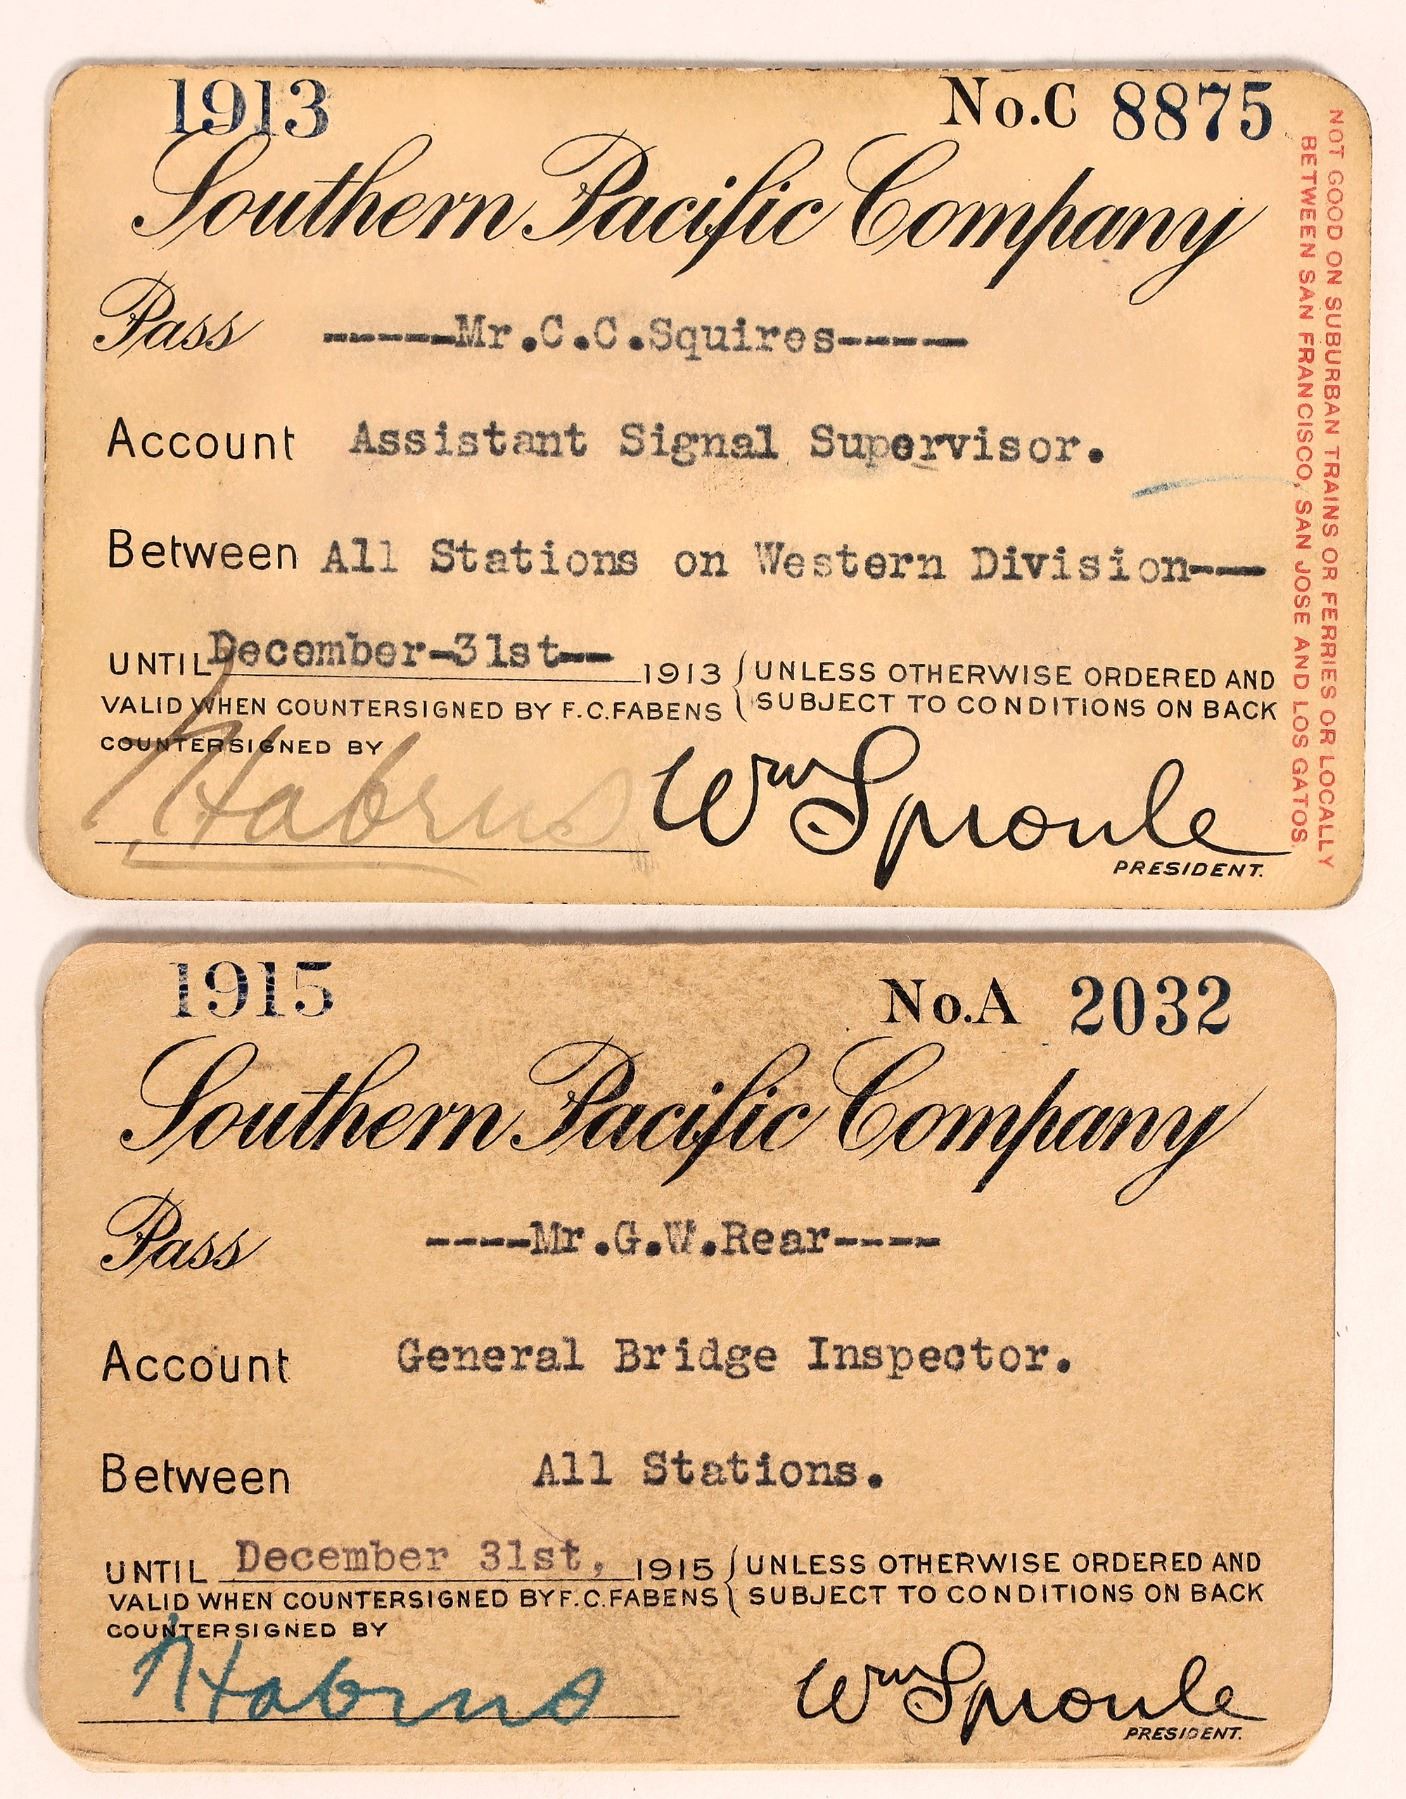 1913 No.C 8875
Southern Pacific Company
Pass -----Mr.C.C.Squires-----
Account Assistant Signal Supervisor.
Between All Stations on Western Division---
UNTIL December-31st-- 1913 { UNLESS OTHERWISE ORDERED AND
VALID WHEN COUNTERSIGNED BY F.C.FABENS { SUBJECT TO CONDITIONS ON BACK
COUNTERSIGNED BY
Wm Sproule
PRESIDENT.
NOT GOOD ON SUBURBAN TRAINS OR FERRIES OR LOCALLY
BETWEEN SAN FRANCISCO, SAN JOSE AND LOS GATOS.
1915 No.A 2032
Southern Pacific Company
Pass ----Mr.G.W.Rear----
Account General Bridge Inspector.
Between All Stations.
UNTIL December 31st, 1915 { UNLESS OTHERWISE ORDERED AND
VALID WHEN COUNTERSIGNED BY F.C.FABENS { SUBJECT TO CONDITIONS ON BACK
COUNTERSIGNED BY
Wm Sproule
PRESIDENT.